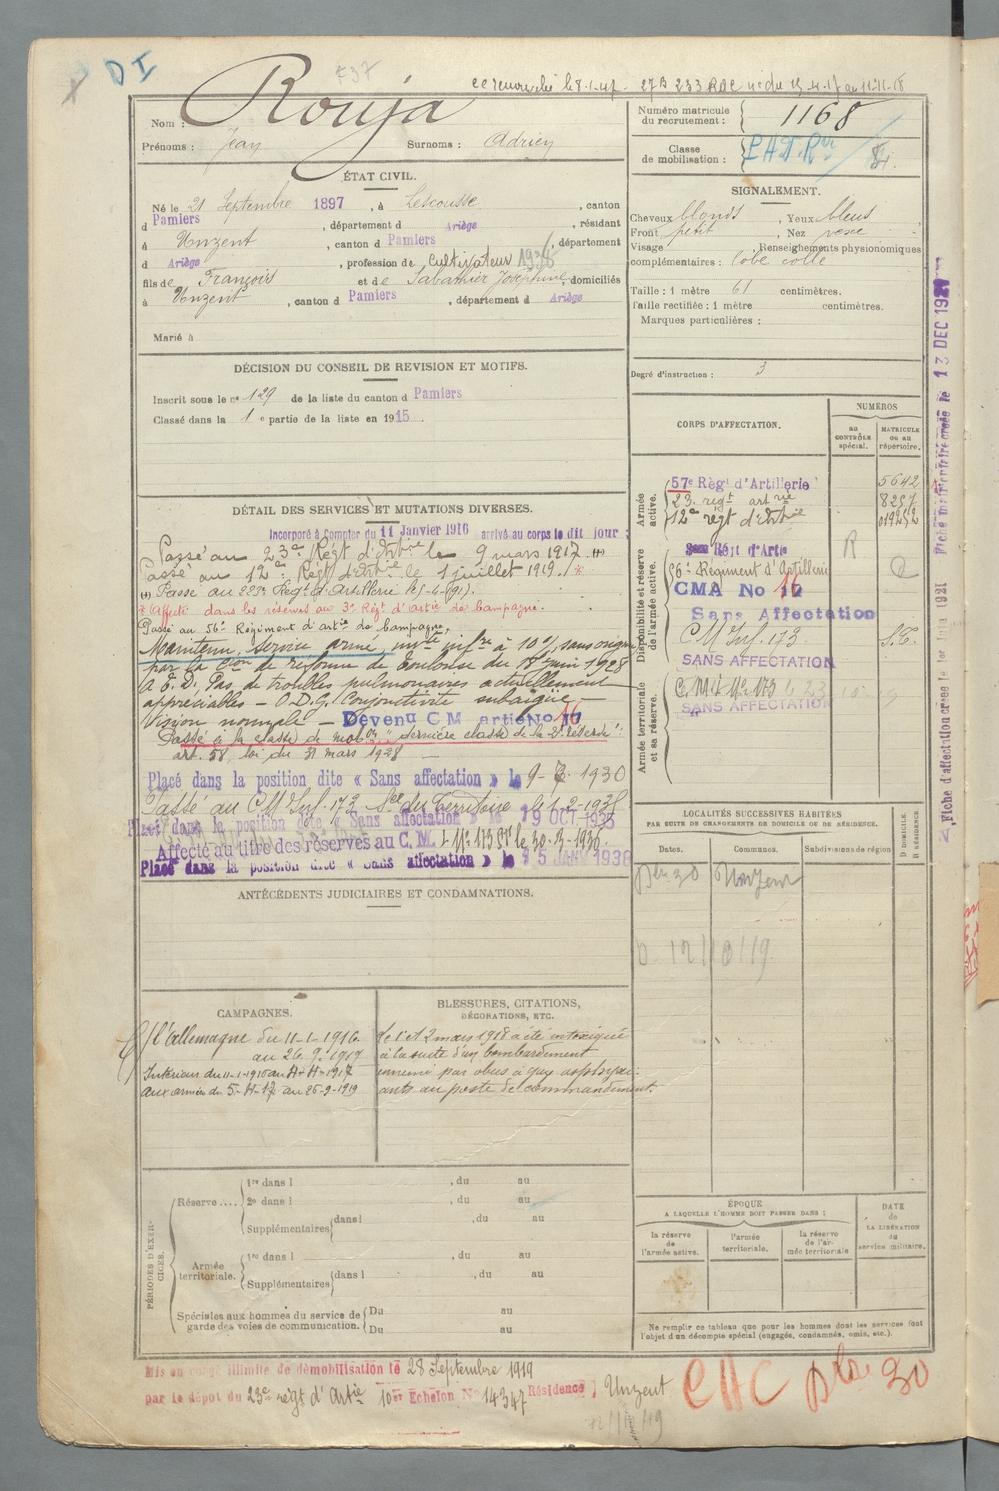 DI
737
cc renouvelée le 8-1-47 - 27 B 233 RAC nc du 15-4-17 au 11-11-18
Nom : Rouja
Prénoms : Jean Surnoms : Adrien
ÉTAT CIVIL.
Né le 21 Septembre 1897, à Lescousse, canton
d Pamiers, département d Ariège, résidant
à Unzent, canton d Pamiers, département
d Ariège, profession de Cultivateur 1938
fils de François et de Sabathier Joséphine, domiciliés
à Unzent, canton d Pamiers, département d Ariège
Marié à
DÉCISION DU CONSEIL DE REVISION ET MOTIFS.
Inscrit sous le nº 129 de la liste du canton d Pamiers
Classé dans la 1 e partie de la liste en 1915.
DÉTAIL DES SERVICES ET MUTATIONS DIVERSES.
Incorporé à compter du 11 Janvier 1916 arrivé au corps le dit jour :
Passé au 23e Régt d'Artie le 9 mars 1917 (H)
Passé au 12e Régt d'Artie le 1 juillet 1919. / *
(H) Passé au 223e Régt d'Artillerie le 1-4-1917.
* Affecté dans les réserves au 3e Régt d'artie de Campagne.
Passé au 56e Régiment d'artie de Campagne.
Maintenu service armé invté infre à 10 %, sans origine
par la Con de réforme de Toulouse du 18 juin 1928
A.E.D. Pas de troubles pulmonaires actuellement
appréciables - O.D.G. Conjonctivite subaigüe -
Vision normale - Devenu CM artie No 16
Passé à la classe de mobon "dernière classe de la 2e réserve" :
art. 58, loi du 31 mars 1928
Placé dans la position dite « Sans affectation » le 9-3-1930
Passé au CM Inf. 173 Son du Territoire le 1-2-1935
Placé dans la position dite « Sans affectation » le 19 OCT. 1935
Affecté au titre des réserves au C.M. le 30-3-1936
Placé dans la position dite « Sans affectation » le 15 JANV 1938
ANTÉCÉDENTS JUDICIAIRES ET CONDAMNATIONS.
CAMPAGNES.
C/ l'Allemagne du 11-1-1916
au 26-9-1919
Intérieur du 11-1-1916 au 4-4-1917
aux armées du 5-4-17 au 26-9-1919
BLESSURES, CITATIONS,
DÉCORATIONS, ETC.
Le 1 et 2 mars 1918 a été intoxiqué
à la suite d'un bombardement
ennemi par obus à gaz asphyxi-
ants au poste de commandement.
PÉRIODES D'EXERCICES.
Réserve....
1re dans l , du au
2e dans l , du au
Supplémentaires dans l , du au
Armée territoriale.
1re dans l , du au
Supplémentaires dans l , du au
Spéciales aux hommes du service de garde des voies de communication.
Du au
Du au
Mis en congé illimité de démobilisation le 28 Septembre 1919
par le dépôt du 23e régt d'Artie 10er Echelon No 14347 Résidence } Unzent
12/10/19
Numéro matricule
du recrutement : 1168
Classe
de mobilisation :
SIGNALEMENT.
Cheveux blonds, Yeux bleus,
Front petit, Nez vexe
Visage , Renseignements physionomiques
complémentaires : lobe collé
Taille : 1 mètre 61 centimètres.
Taille rectifiée : 1 mètre centimètres.
Marques particulières :
Degré d'instruction : 3
CORPS D'AFFECTATION.
NUMÉROS
au
CONTRÔLE
spécial.
MATRICULE
ou au
répertoire.
Armée active.
57e Régt d'Artillerie 5642
23e régt artrie 8257
12e régt d'artrie 019252
Disponibilité et réserve de l'armée active.
Régt d'Artie R
56e Régiment d'Artillerie
CMA No 16
Sans Affectation
CM Inf. 173 S.T.
SANS AFFECTATION
Armée territoriale et sa réserve.
C.M. 173
SANS AFFECTATION
LOCALITÉS SUCCESSIVES HABITÉES
PAR SUITE DE CHANGEMENTS DE DOMICILE OU DE RÉSIDENCE.
Dates. Communes. Subdivisions de région D DOMICILE. R RÉSIDENCE.
Dec 30 Unzent
D. 12/10/19.
ÉPOQUE
A LAQUELLE L'HOMME DOIT PASSER DANS :
la réserve
de
l'armée active.
l'armée
territoriale.
la réserve
de l'ar-
mée territoriale
DATE
de
LA LIBÉRATION
du
service militaire.
Ne remplir ce tableau que pour les hommes dont les services font
l'objet d'un décompte spécial (engagés, condamnés, omis, etc.).
CAC
30
Fiche d'affectation créée le 1er Juin 1921
Fiche matriculaire créée le 13 DEC 192